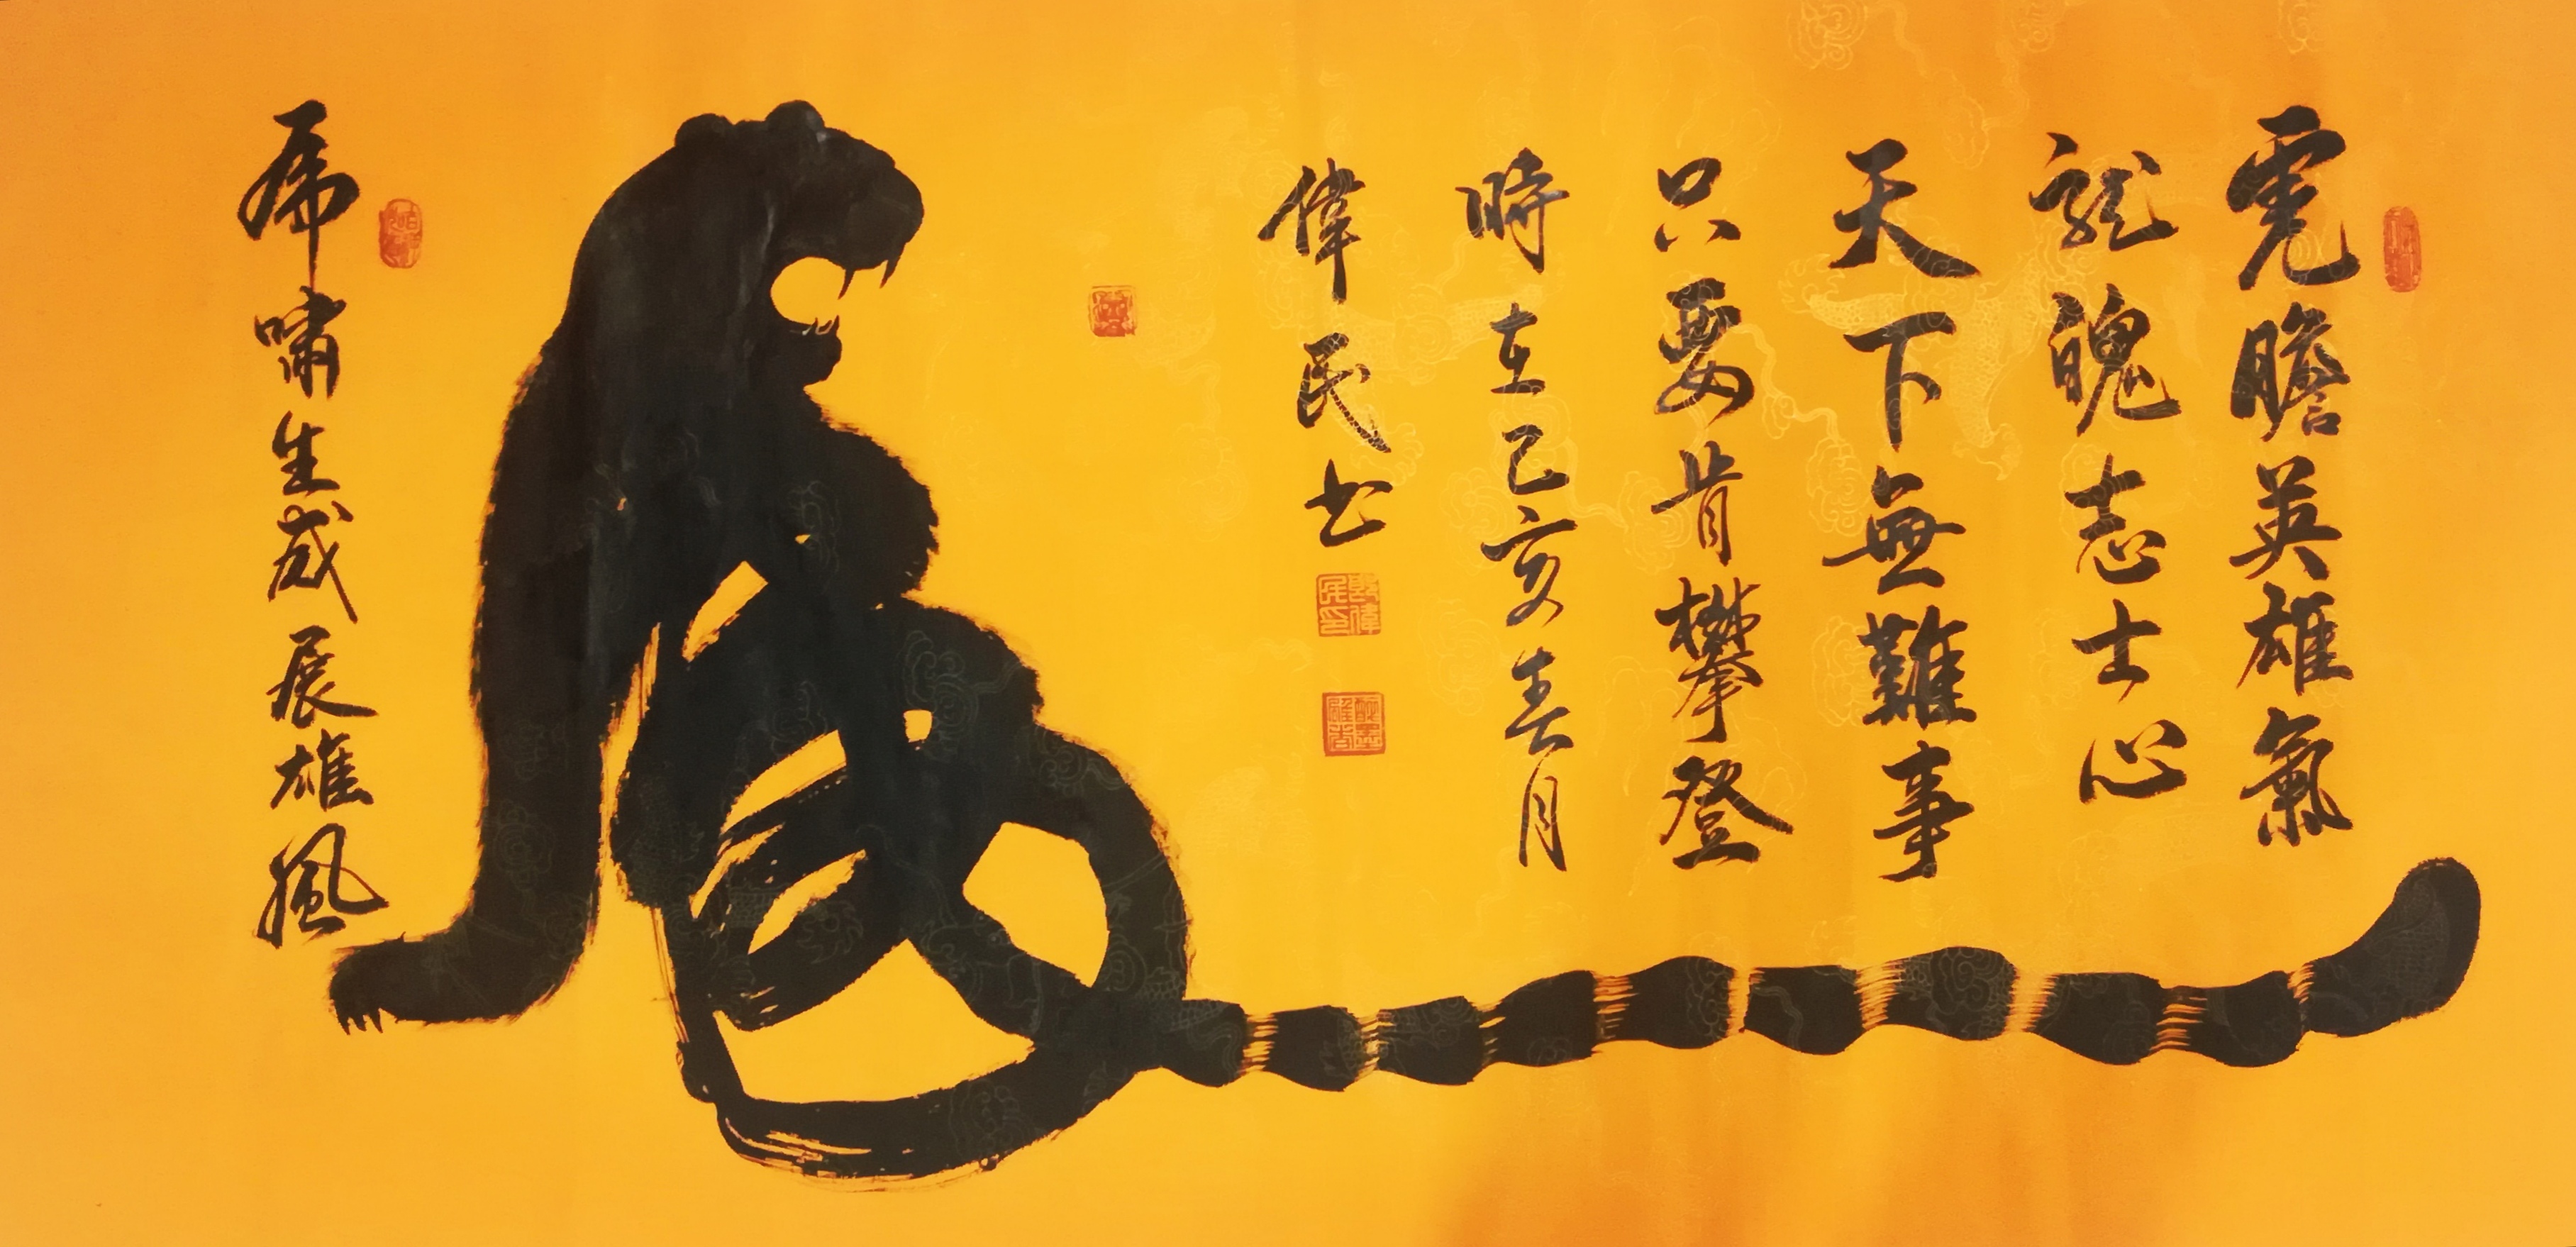 虎膽英雄氣
龍魄志士心
天下無難事
只要肯攀登
時在己亥春月
偉民书
虎嘯生威展雄風